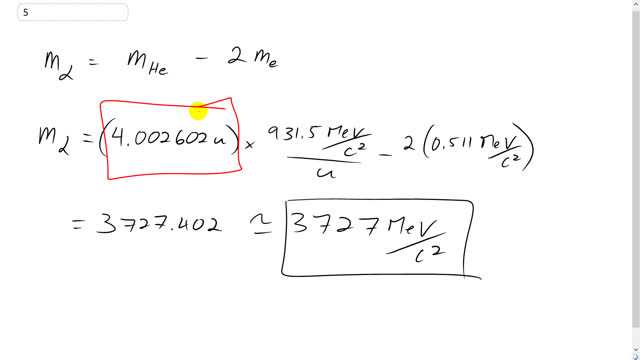 5
m_α = m_He - 2 m_e
m_α = (4.002602 u) × 931.5 MeV/c² / u - 2 (0.511 MeV/c²)
= 3727.402 ≃ 3727 MeV/c²